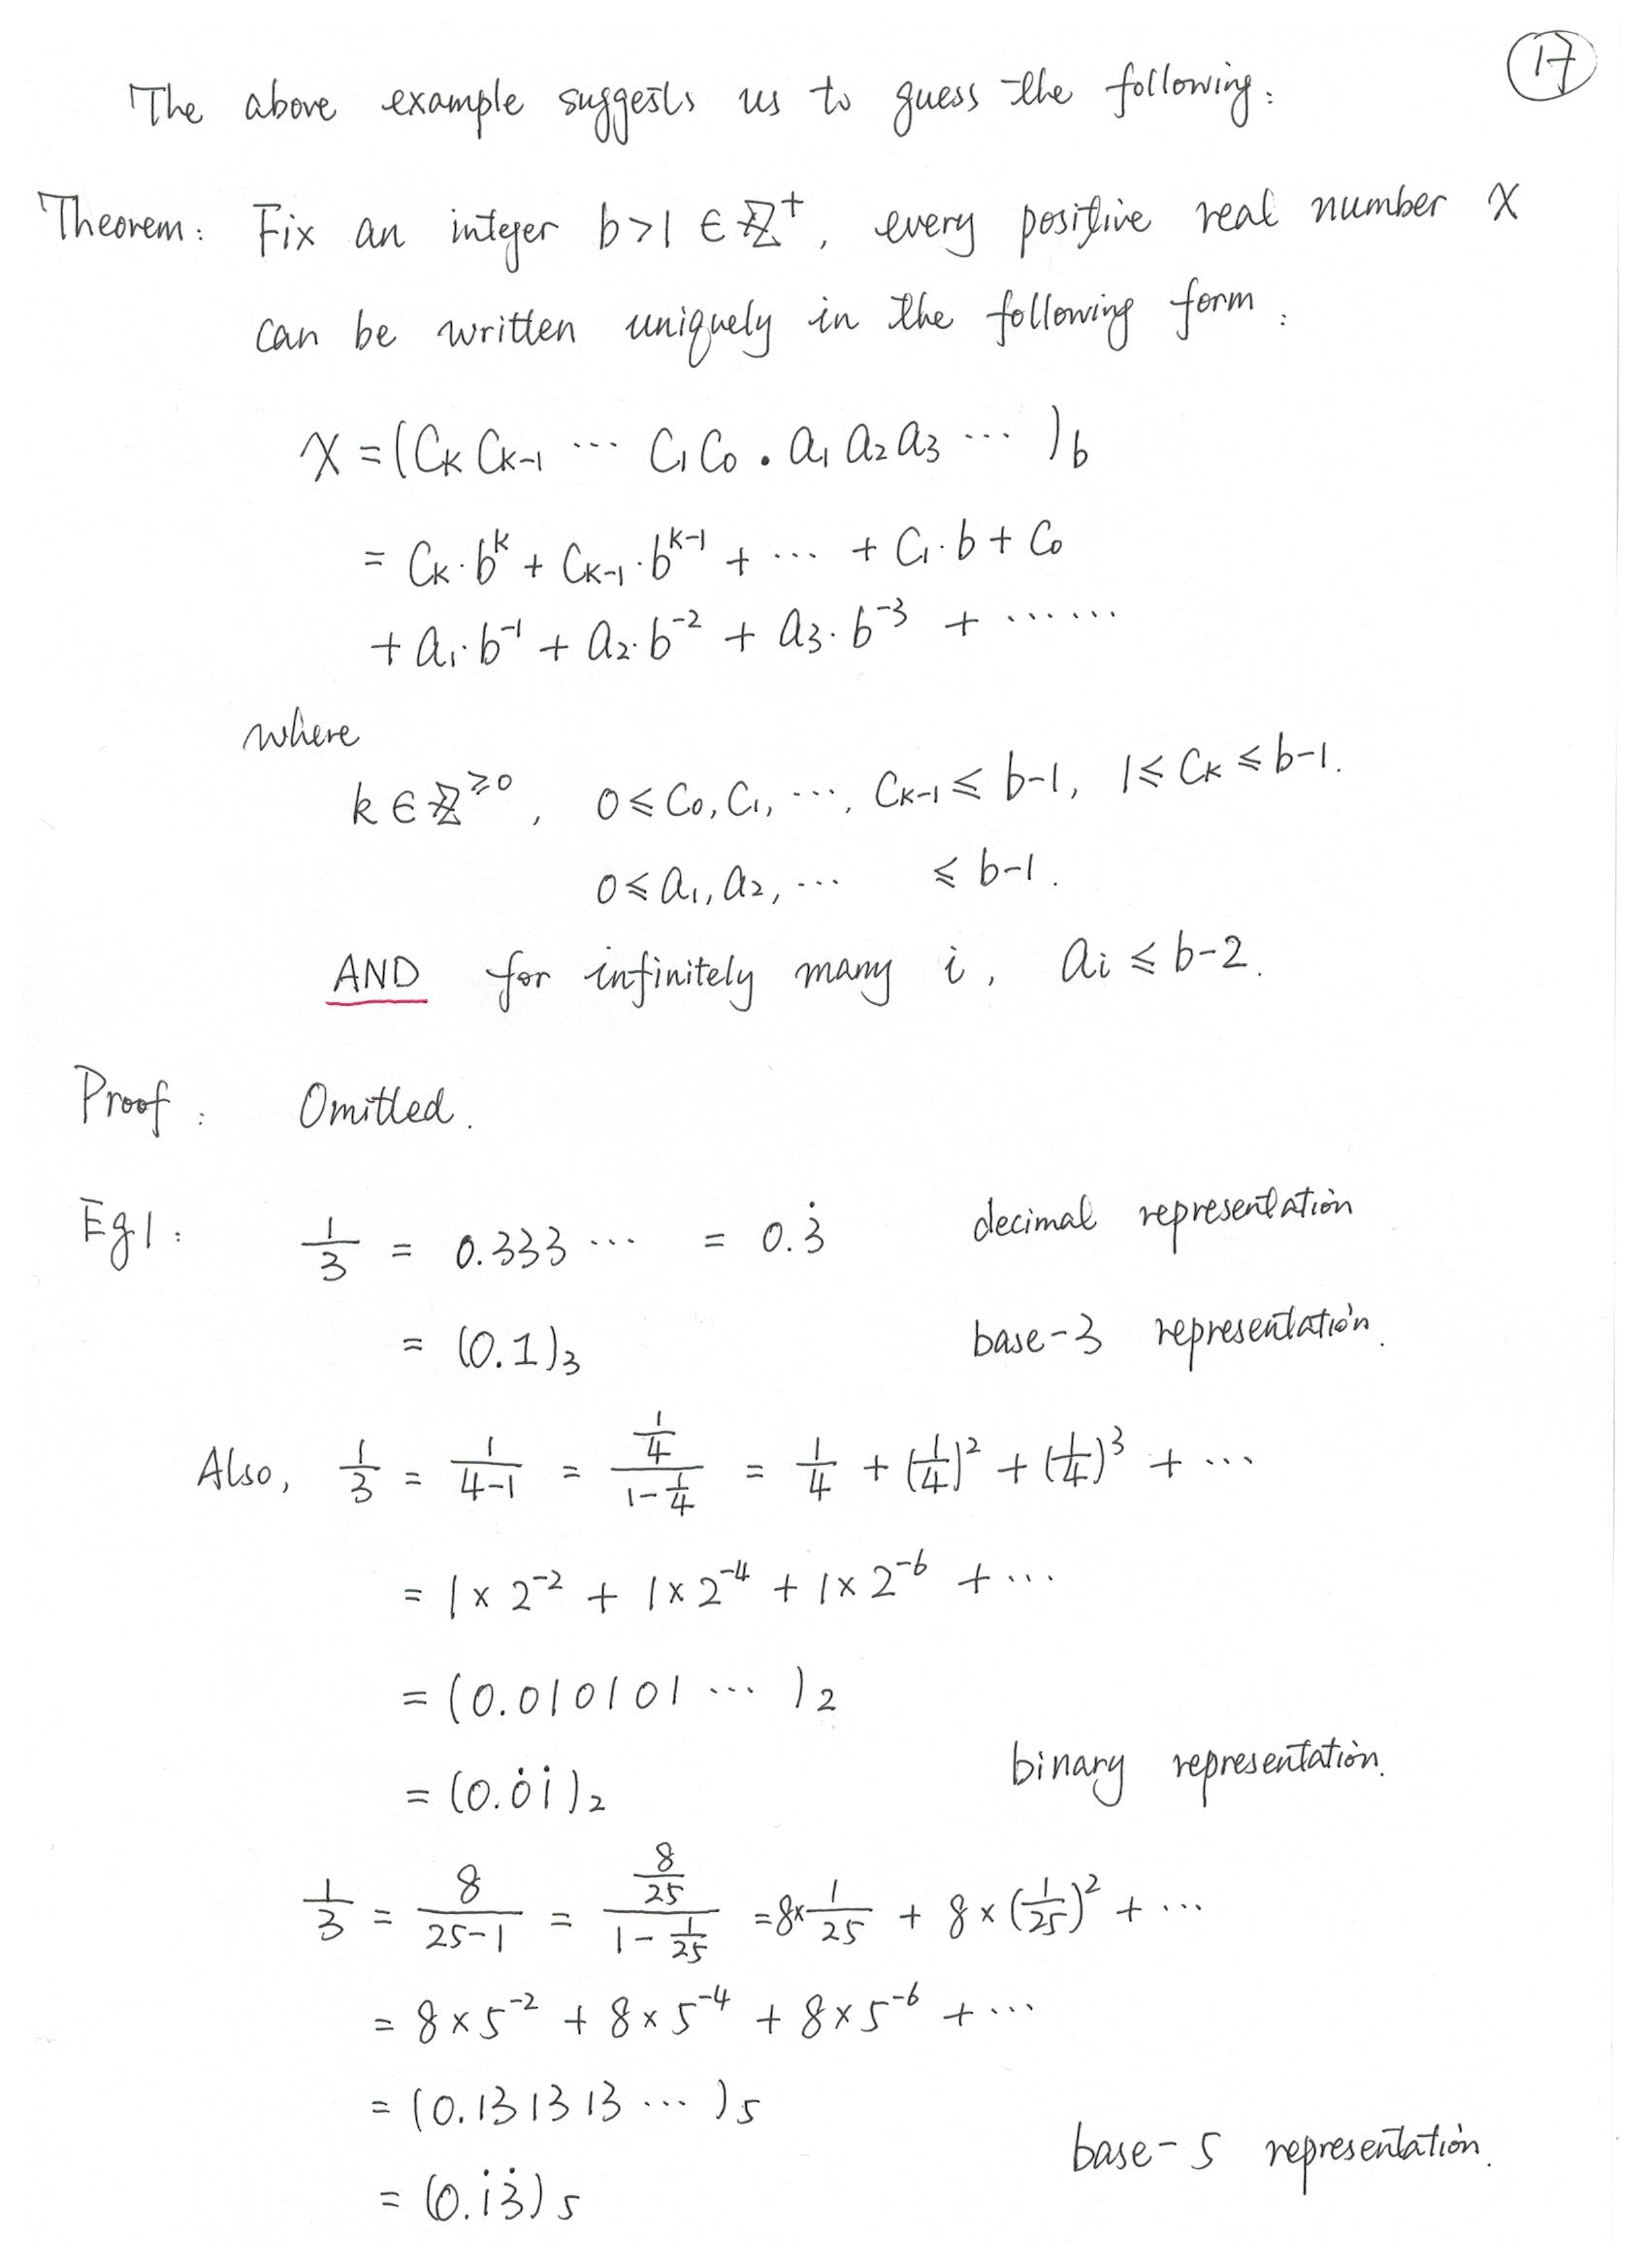 17
The above example suggests us to guess the following:
Theorem: Fix an integer b>1 ∈ ℤ⁺, every positive real number x
can be written uniquely in the following form:
x = (c_k c_{k-1} ⋯ c₁ c₀ . a₁ a₂ a₃ ⋯ )_b
= c_k·b^k + c_{k-1}·b^{k-1} + ⋯ + c₁·b + c₀
+ a₁·b⁻¹ + a₂·b⁻² + a₃·b⁻³ + ⋯⋯
where
k ∈ ℤ^{≥0}, 0 ≤ c₀, c₁, ⋯, c_{k-1} ≤ b-1, 1 ≤ c_k ≤ b-1.
0 ≤ a₁, a₂, ⋯ ≤ b-1.
AND for infinitely many i, a_i ≤ b-2.
Proof: Omitted.
Eg1: 1/3 = 0.333⋯ = 0.3̇ decimal representation
= (0.1)₃ base-3 representation.
Also, 1/3 = 1/(4-1) = (1/4)/(1-1/4) = 1/4 + (1/4)² + (1/4)³ + ⋯
= 1×2⁻² + 1×2⁻⁴ + 1×2⁻⁶ + ⋯
= (0.010101⋯ )₂
= (0.0̇1̇)₂ binary representation.
1/3 = 8/(25-1) = (8/25)/(1-1/25) = 8×1/25 + 8×(1/25)² + ⋯
= 8×5⁻² + 8×5⁻⁴ + 8×5⁻⁶ + ⋯
= (0.131313⋯ )₅
= (0.1̇3̇)₅ base-5 representation.